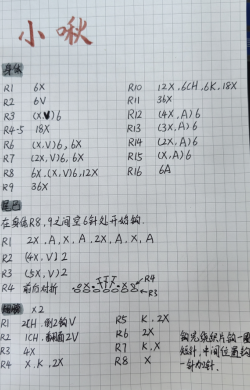 小啾
身体
R1 6X
R2 6V
R3 (X,V)6
R4-5 18X
R6 (X,V)6, 6X
R7 (2X,V)6, 6X
R8 6X,(X,V)6,12X
R9 36X
R10 12X,6CH,6K,18X
R11 36X
R12 (4X,A)6
R13 (3X,A)6
R14 (2X,A)6
R15 (X,A)6
R16 6A
尾巴
在身体R8,9之间空6针处开始钩.
R1 2X,A,X,A,2X,A,X,A
R2 (4X,V)2
R3 (5X,V)2
R4 前后对折
R4
R3
X2
R1 2CH,倒2钩V
R2 1CH,翻面2V
R3 4X
R4 X,K,2X
R5 K,2X
R6 2X
R7 K,X
R8 X
钩完绕织片钩一圈
短针,中间位置钩
一针加针.